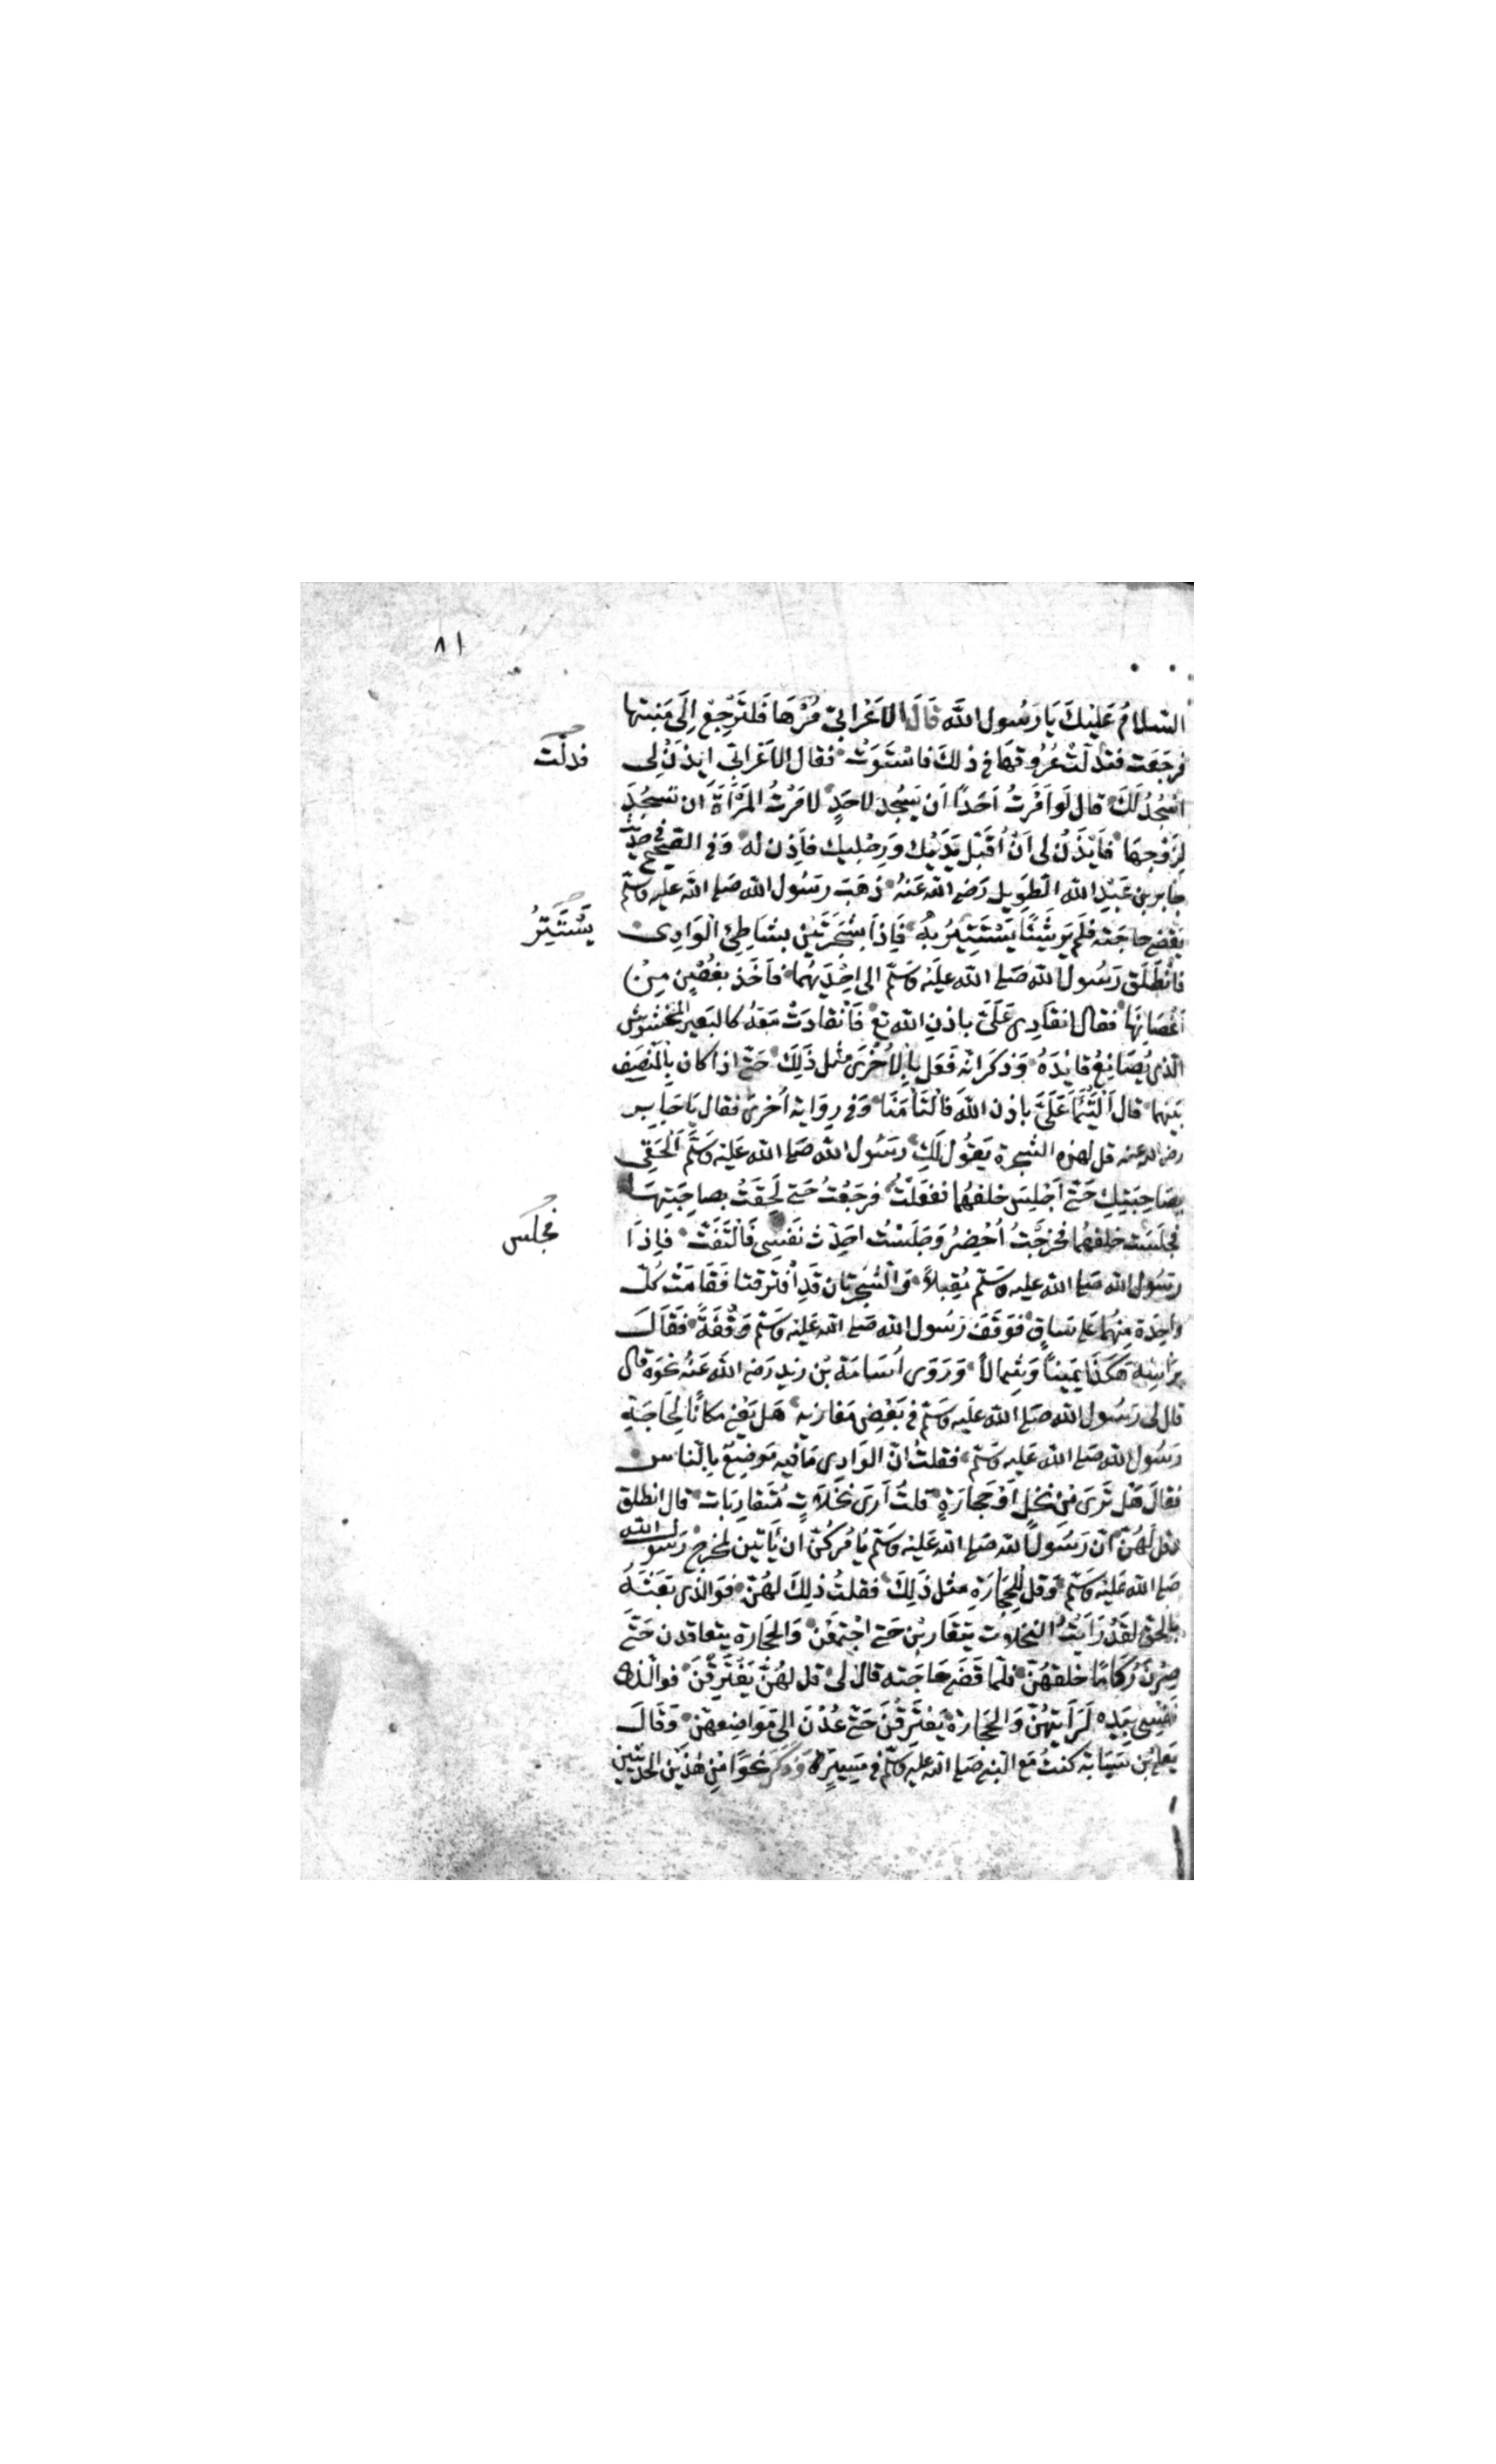 ٨١
السلامُ عَلَيْكَ يَا رَسُول اللَّه قَالَ الاَعْرابىّ مُرْهَا فَلتَرْجِعْ اِلَى مَنبتها
فرجَعَت فتدلّتْ عُرُوقهَا فى ذلكَ فاسْتَوَتْ فقال الاَعْرابىّ ايذَنْ لى
فدلّت
اَسْجُدْ لَكَ قال لَوْ اَمَرْتُ اَحَدًا اَن يَسْجُدَ لاحَدٍ لاَمَرْتُ المَرْأةَ ان تَسجُدَ
لِزَوْجِهَا فأيْذَنْ لى اَنْ اُقَبّل يَدَيْكَ وَرِجْليك فأذِن له وَفى الصّحيح فى حديث
جابر بن عَبْدِ الله الطَوِيل رَضى الله عَنهُ ذهَبَ رسَوُل الله صَلى الله عليه وسَلّم
يَقْضى حاجَتَه فلَم يَرَ شَيْئًا يَسْتَتِرُ بهُ فَاِذا بشَجَرَتَيْن بشَاطِئ الْوَادِى
يَسْتَتِرُ
فانْطَلَق رَسُول الله صَلى الله علَيْه وَسَلّم الى اِحْدَيهُما فأخَذ بغُصْنٍ مِنْ
اَغْصَانِهَا فقال انقَادِى عَلَىّ باذنِ الله تع فَانْقَادَتْ مَعَهُ كالبَعير المخشوش
الّذى يُصَانِعُ قايْدَهُ وَذكَرَ انه فَعَل بالاُخْرَى مثْل ذَلِكَ حَتّى اذا كان بالْمَنْصَفِ
بَيْنهما قال اَلْتَئِما عَلَىَّ باذن اللهَ فالتأمَتا وَفى رِوَاية اُخرى فقال يَا جَابِر
رضى الله عنه قل لهذه الشجرة يَقوُل لَكِ رَسُول الله صَلى الله عَليْه وَسَلَّم اَلْحَقِى
بصَاحِبَتِكِ حَتّى اَجْلِسَ خلفهُما نفعَلَتْ فرجَعْتُ حَتى لَحِقَتْ بصاحِبَتِهَا
فجلَسَت خلفهُما فخرَجْتُ اُحْضِرُ وَجَلَسْتُ احَدِّث نَفسِى فَالتَفَتّ فاِذَا
فجلس
رَسُول الله صَلى الله عليه وَسَلّم مُقبلاً وَالشجرتان قَدِ افتَرقتا فَقَامَتْ كُلّ
وَاحِدَة مِنهُما عَلى سَاقٍ فوَقَفَ رَسُول الله صَلى الله عَليْه وَسَلّم وَقْفَةً فقَالَ
برَأسِه هَكَذَا يَمِيناً وَشِمالاً وَرَوَى اُسَامَة بْن زيد رَضى الله عَنْهُ نحْوَهُ قال
قال لى رَسُول الله صَلى الله عَليه وَسَلّم فى بَعْضِ مَغازيه هَل يَعْنى مكانًا لِحَاجَةِ
رَسُول الله صَلى الله عَليه وَسَلّم فقلتُ انّ الوَادِى مَا فيه مَوضِعٌ بالناس
فقالَ هَل تَرَى مِنْ نخلٍ اَوْ حِجارَةٍ قلتُ اَرَى نَخَلاَتٍ مُتَقارِبَات قال انطلق
وقل لَهُنّ انّ رَسُولَ الله صَلى الله عَليْه وَسَلّم يَأمُركُنّ ان يَأتين لمخرجِ رَسُول الله
صَلى الله عَليْه وَسَلّم وَقل لِلحِجَارَةِ مثْل ذَلِكَ فقلتُ ذلِكَ لهُنّ فوَ الذى بَعَثهُ
بالحقّ لقَدْ رَأيْتُ النخلات يتقَاربْن حَتى اجْتمَعْن وَالحجَارة يتعاقدن حَتّى
صِرْنَ رُكَامًا خَلفهُنّ فلمّا قَضَى حَاجَته قال لى قل لهُنّ يَفْتَرِقْنَ فوَالّذى
نَفسِى بيَدِه لَرَأيتهُنّ وَالحجَارة يَفتَرِقْنَ حَتّى عُدْنَ الى مَوَاضِعِهنّ وَقَالَ
يَعْلَى بْن سَيَّابَة كنتُ مَعَ النبى صَلى الله عليه وَسَلّم فى مَسِيرٍ وَذكَرَ نَحْوًا مِنْ هٰذَيْن الحَديثين